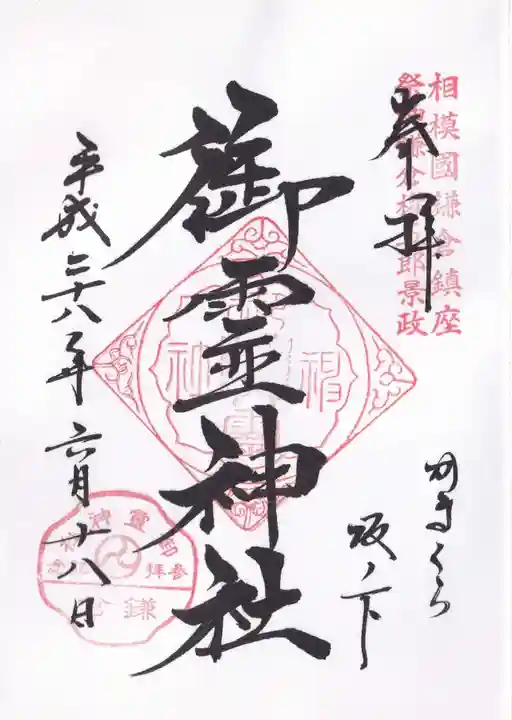 相模國鎌倉鎮座
祭神鎌倉権五郎景政
奉拝
かまくら
坂ノ下
御霊神社
平成二十八年六月十八日
参拝
鎌